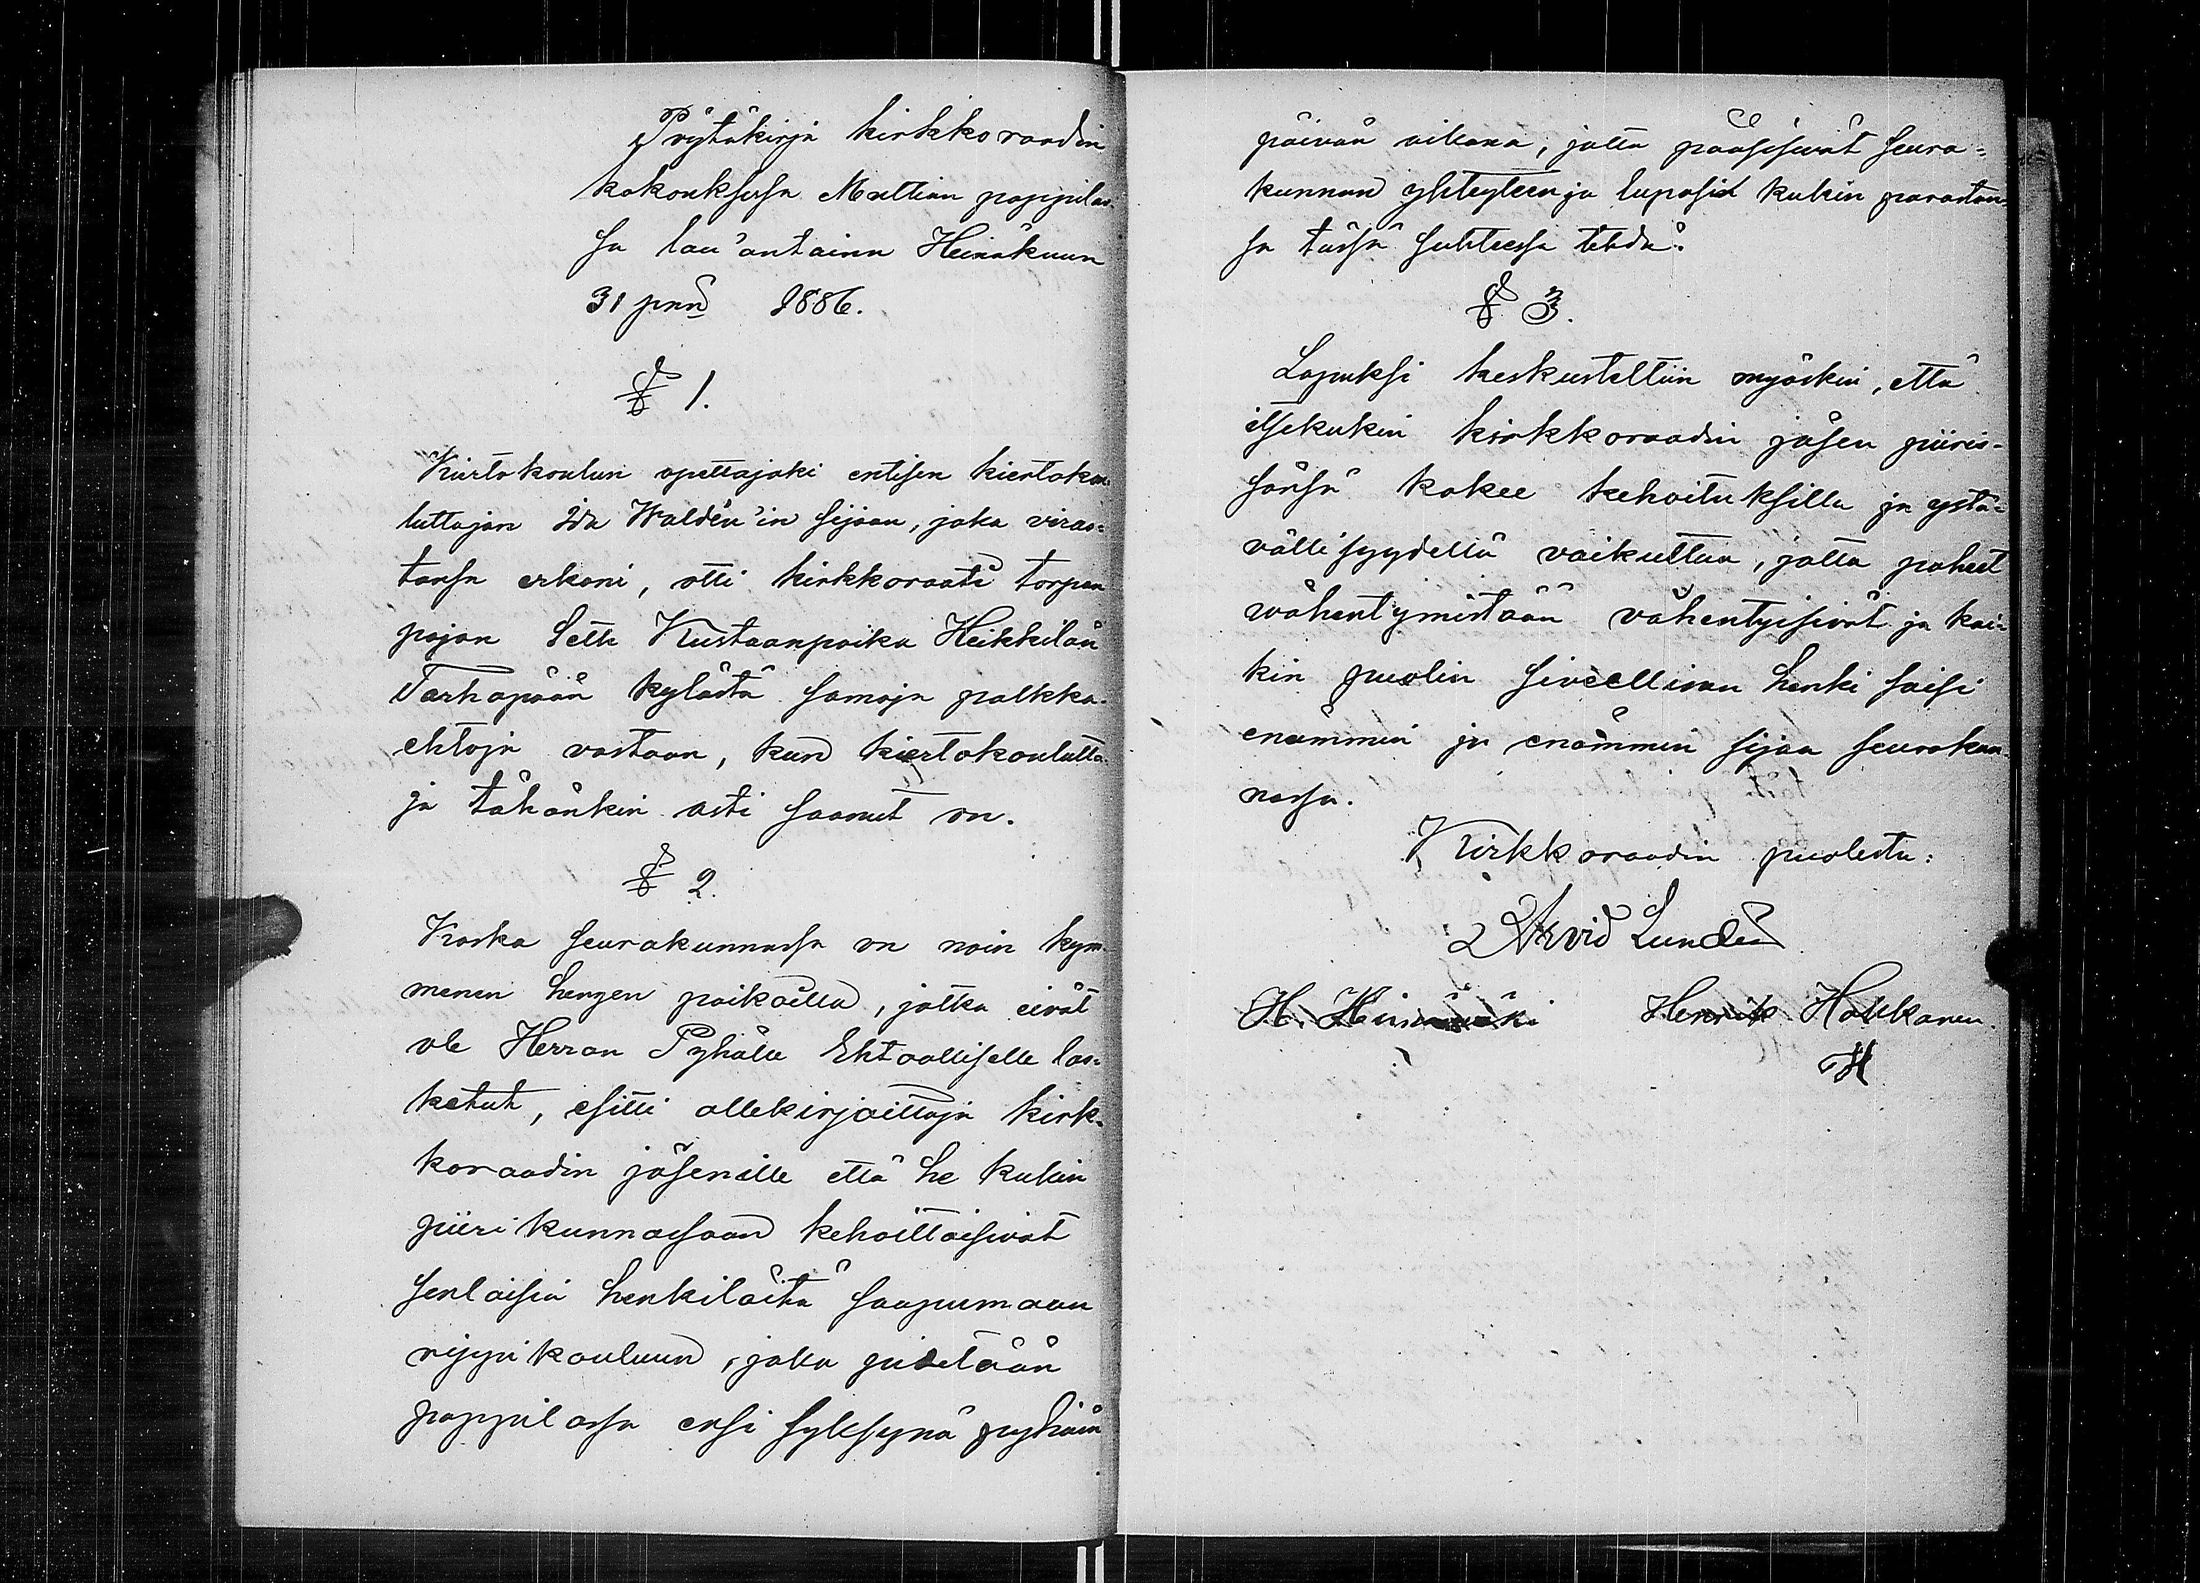 Pöytäkirja kirkkoraadin
kokouksessa Multian pappilas-
sa lau'antaina Heinäkuun
31 pnä 1886.
§ 1.
Kiertokoulun opettajaksi entisen kiertokou-
luttajan Ida Waldén'in sijaan, joka viras-
tansa erkani, otti kirkkoraati torpan
pojan Seth Kustaanpoika Heikkilän
Tarhapään kylästä samoja palkka-
ehtoja vastaan, kun kiertokoulutta-
ja tähänkin asti saanut on.
§ 2.
Koska seurakunnassa on noin kym-
menen hengen paikoilla, jotka eivät
ole Herran Pyhälle Ehtoolliselle las-
ketut, esitti allekirjoittaja kirk-
koraadin jäsenille että he kukin
piirikunnassaan kehoittaisivat
senlaisia henkilöitä saapumaan
rippikouluun, joka pidetään
pappilassa ensi syksynä pyhäin
päivän aikana, jotta pääsisivät seura-
kunnan yhteyteen ja lupasid kukin parastan-
sa tässä suhteessa tehdä.
§ 3.
Lopuksi keskusteltiin myöskin, että
itsekukin kirkkoraadin jäsen piiris-
sänsä kokee kehoituksilla ja ystä-
vällisyydellä vaikuttaa, jotta paheet
wähentymistään vähentyisivät ja kai-
kin puolin siveellinen henki saisi
enämmin ja enämmin sijaa seurakun-
nassa.
Kirkkoraadin puolesta:
Arvid Lundén
H. Heinämäki Henrik Houkanen.